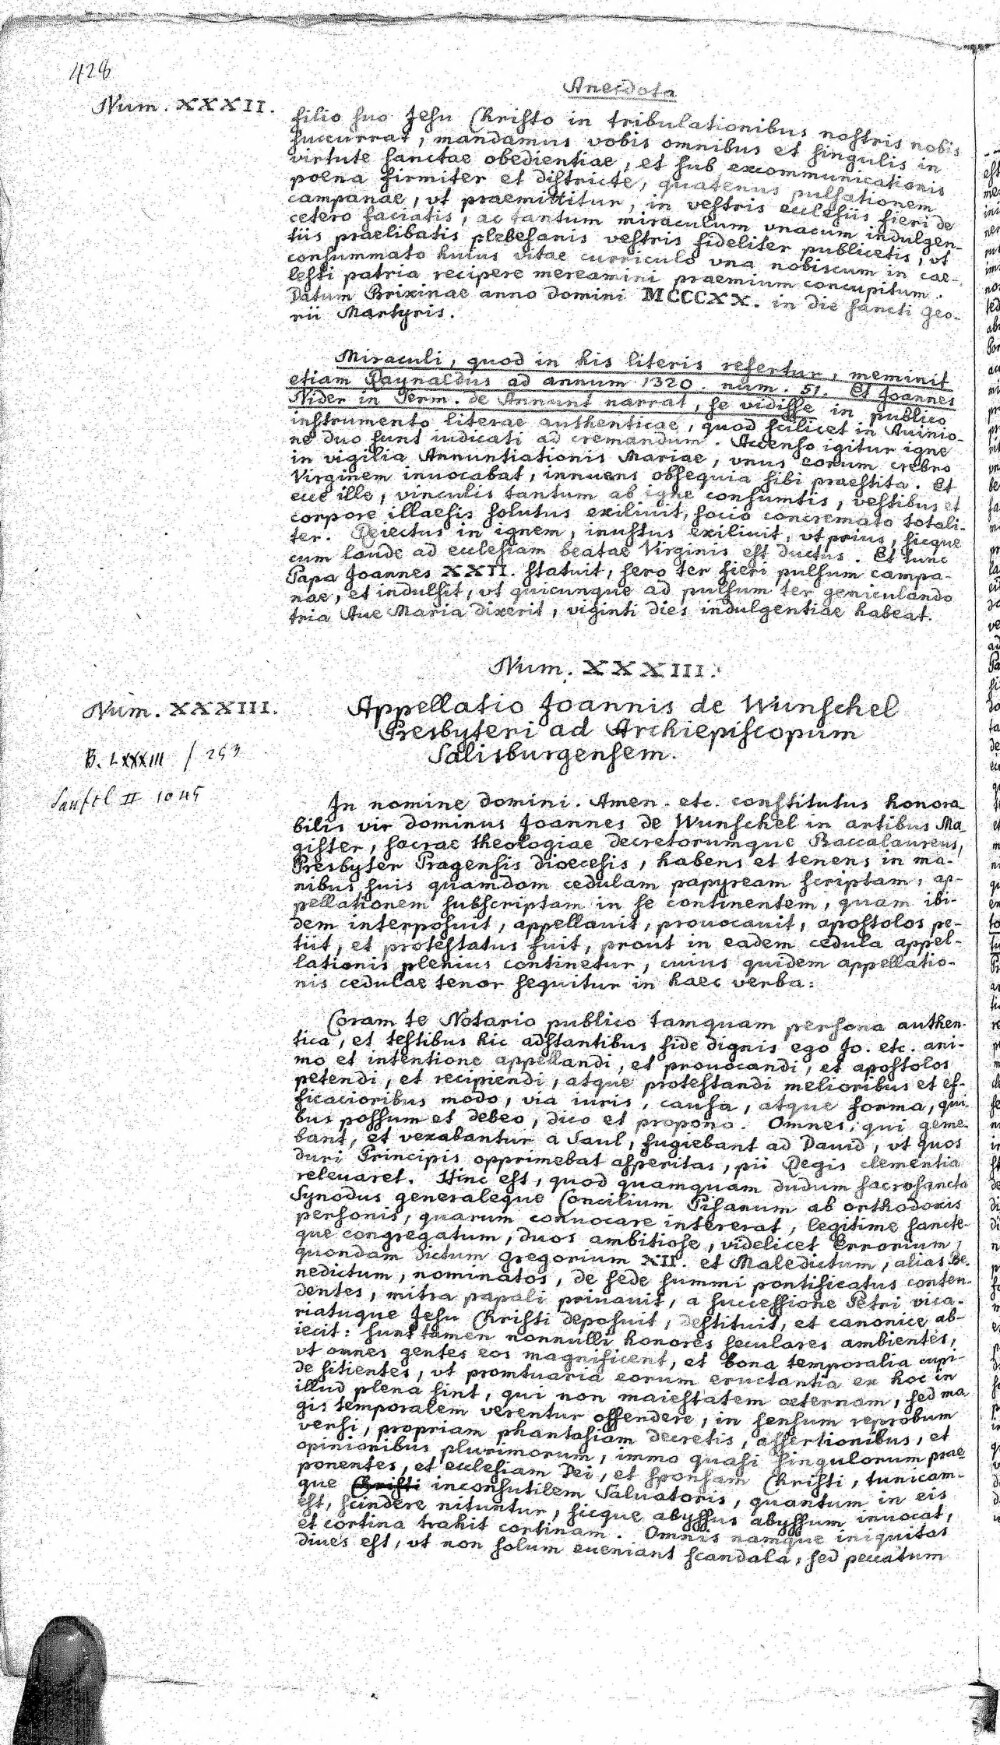 428
Anecdota
Num. XXXII.
filio suo Jesu Christo in tribulationibus nostris nobis
succurrat, mandamus vobis omnibus et singulis in
virtute sanctae obedientiae, et sub excommunicationis
poena firmiter et districte, quatenus pulsationem
campanae, vt praemittitur, in vestris ecclesiis fieri de
cetero faciatis, ac tantum miraculum vnacum indulgen-
tiis praelibatis plebesanis vestris fideliter publicetis, vt
consummato huius vitae curriculo vna nobiscum in cae-
lesti patria recipere mereamini praemium concupitum.
Datum Brixinae anno domini MCCCXX. in die sancti Geo-
rii Martyris.
Miraculi, quod in his literis refertur, meminit
etiam Raynaldus ad annum 1320. num. 51. Et Joannes
Nider in Term. de Annunt narrat, se vidisse in publico
instrumento literae authenticae, quod scilicet in Auinio-
ne duo sunt iudicati ad cremandum. Accenso igitur igne
in vigilia Annuntiationis Mariae, vnus eorum crebro
Virginem inuocabat, innuens obsequia sibi praestita. Et
ecce ille, vinculis tantum ab igne consumtis, vestibus et
corpore illaesis solutus exiliuit, socio concremato totali-
ter. Reiectus in ignem, inustus exiliuit, vt prius, sicque
cum laude ad ecclesiam beatae Virginis est ductus. Et tunc
Papa Joannes XXII. statuit, sero ter fieri pulsum campa-
nae, et indulsit, vt quicunque ad pulsum ter geniculando
tria Aue Maria dixerit, viginti dies indulgentiae habeat.
Num. XXXIII.
Num. XXXIII.
B. LXXXIII / 253
II 1045
Appellatio Joannis de Wunschel
Presbyteri ad Archiepiscopum
Salisburgensem.
In nomine domini. Amen. etc. constitutus honora
bilis vir dominus Joannes de Wunschel in artibus Ma-
gister, sacrae theologiae decretorumque Baccalaureus,
Presbyter Pragensis dioecesis, habens et tenens in ma-
nibus suis quamdam cedulam papyream scriptam, ap-
pellationem subscriptam in se continentem, quam ibi-
dem interposuit, appellauit, prouocauit, apostolos pe-
tiit, et protestatus fuit, prout in eadem cedula appel-
lationis plenius continetur, cuius quidem appellatio-
nis cedulae tenor sequitur in haec verba:
Coram te Notario publico tamquam persona authen-
tica, et testibus hic adstantibus fide dignis ego Jo. etc. ani-
mo et intentione appellandi, et prouocandi, et apostolos
petendi, et recipiendi, atque protestandi melioribus et ef-
ficacioribus modo, via iuris, causa, atque forma, qui-
bus possum et debeo, dico et propono. Omnes, qui geme-
bant, et vexabantur a Saul, fugiebant ad Dauid, vt quos
duri Principis opprimebat asperitas, pii Regis clementia
releuaret. Hinc est, quod quamquam dudum sacrosancta
Synodus generaleque Concilium Pisanum ab orthodoxis
personis, quarum conuocare intererat, legitime sancte-
que congregatum, duos ambitiose, videlicet Errorium,
quondam dictum Gregorium XII. et Maledictum, alias Be-
nedictum, nominatos, de sede summi pontificatus conten-
dentes, mitra papali priuauit, a successione Petri vica-
riatuque Jesu Christi deposuit, destituit, et canonice ab-
iecit: sunt tamen nonnulli honores seculares ambientes,
vt omnes gentes eos magnificent, et bona temporalia cupi-
de sitientes, vt promtuaria eorum eructantia ex hoc in
illud plena sint, qui non maiestatem aeternam, sed ma
gis temporalem verentur offendere, in sensum reprobum
versi, propriam phantasiam decretis, assertionibus, et
opinionibus plurimorum, immo quasi singulorum prae
ponentes, et ecclesiam Dei, et sponsam Christi, tunicam-
que Christi inconsutilem Saluatoris, quantum in eis
est, scindere nituntur, sicque abyssus abyssum inuocat,
et cortina trahit cortinam. Omnis namque iniquitas
diues est, vt non solum eueniant scandala, sed peccatum